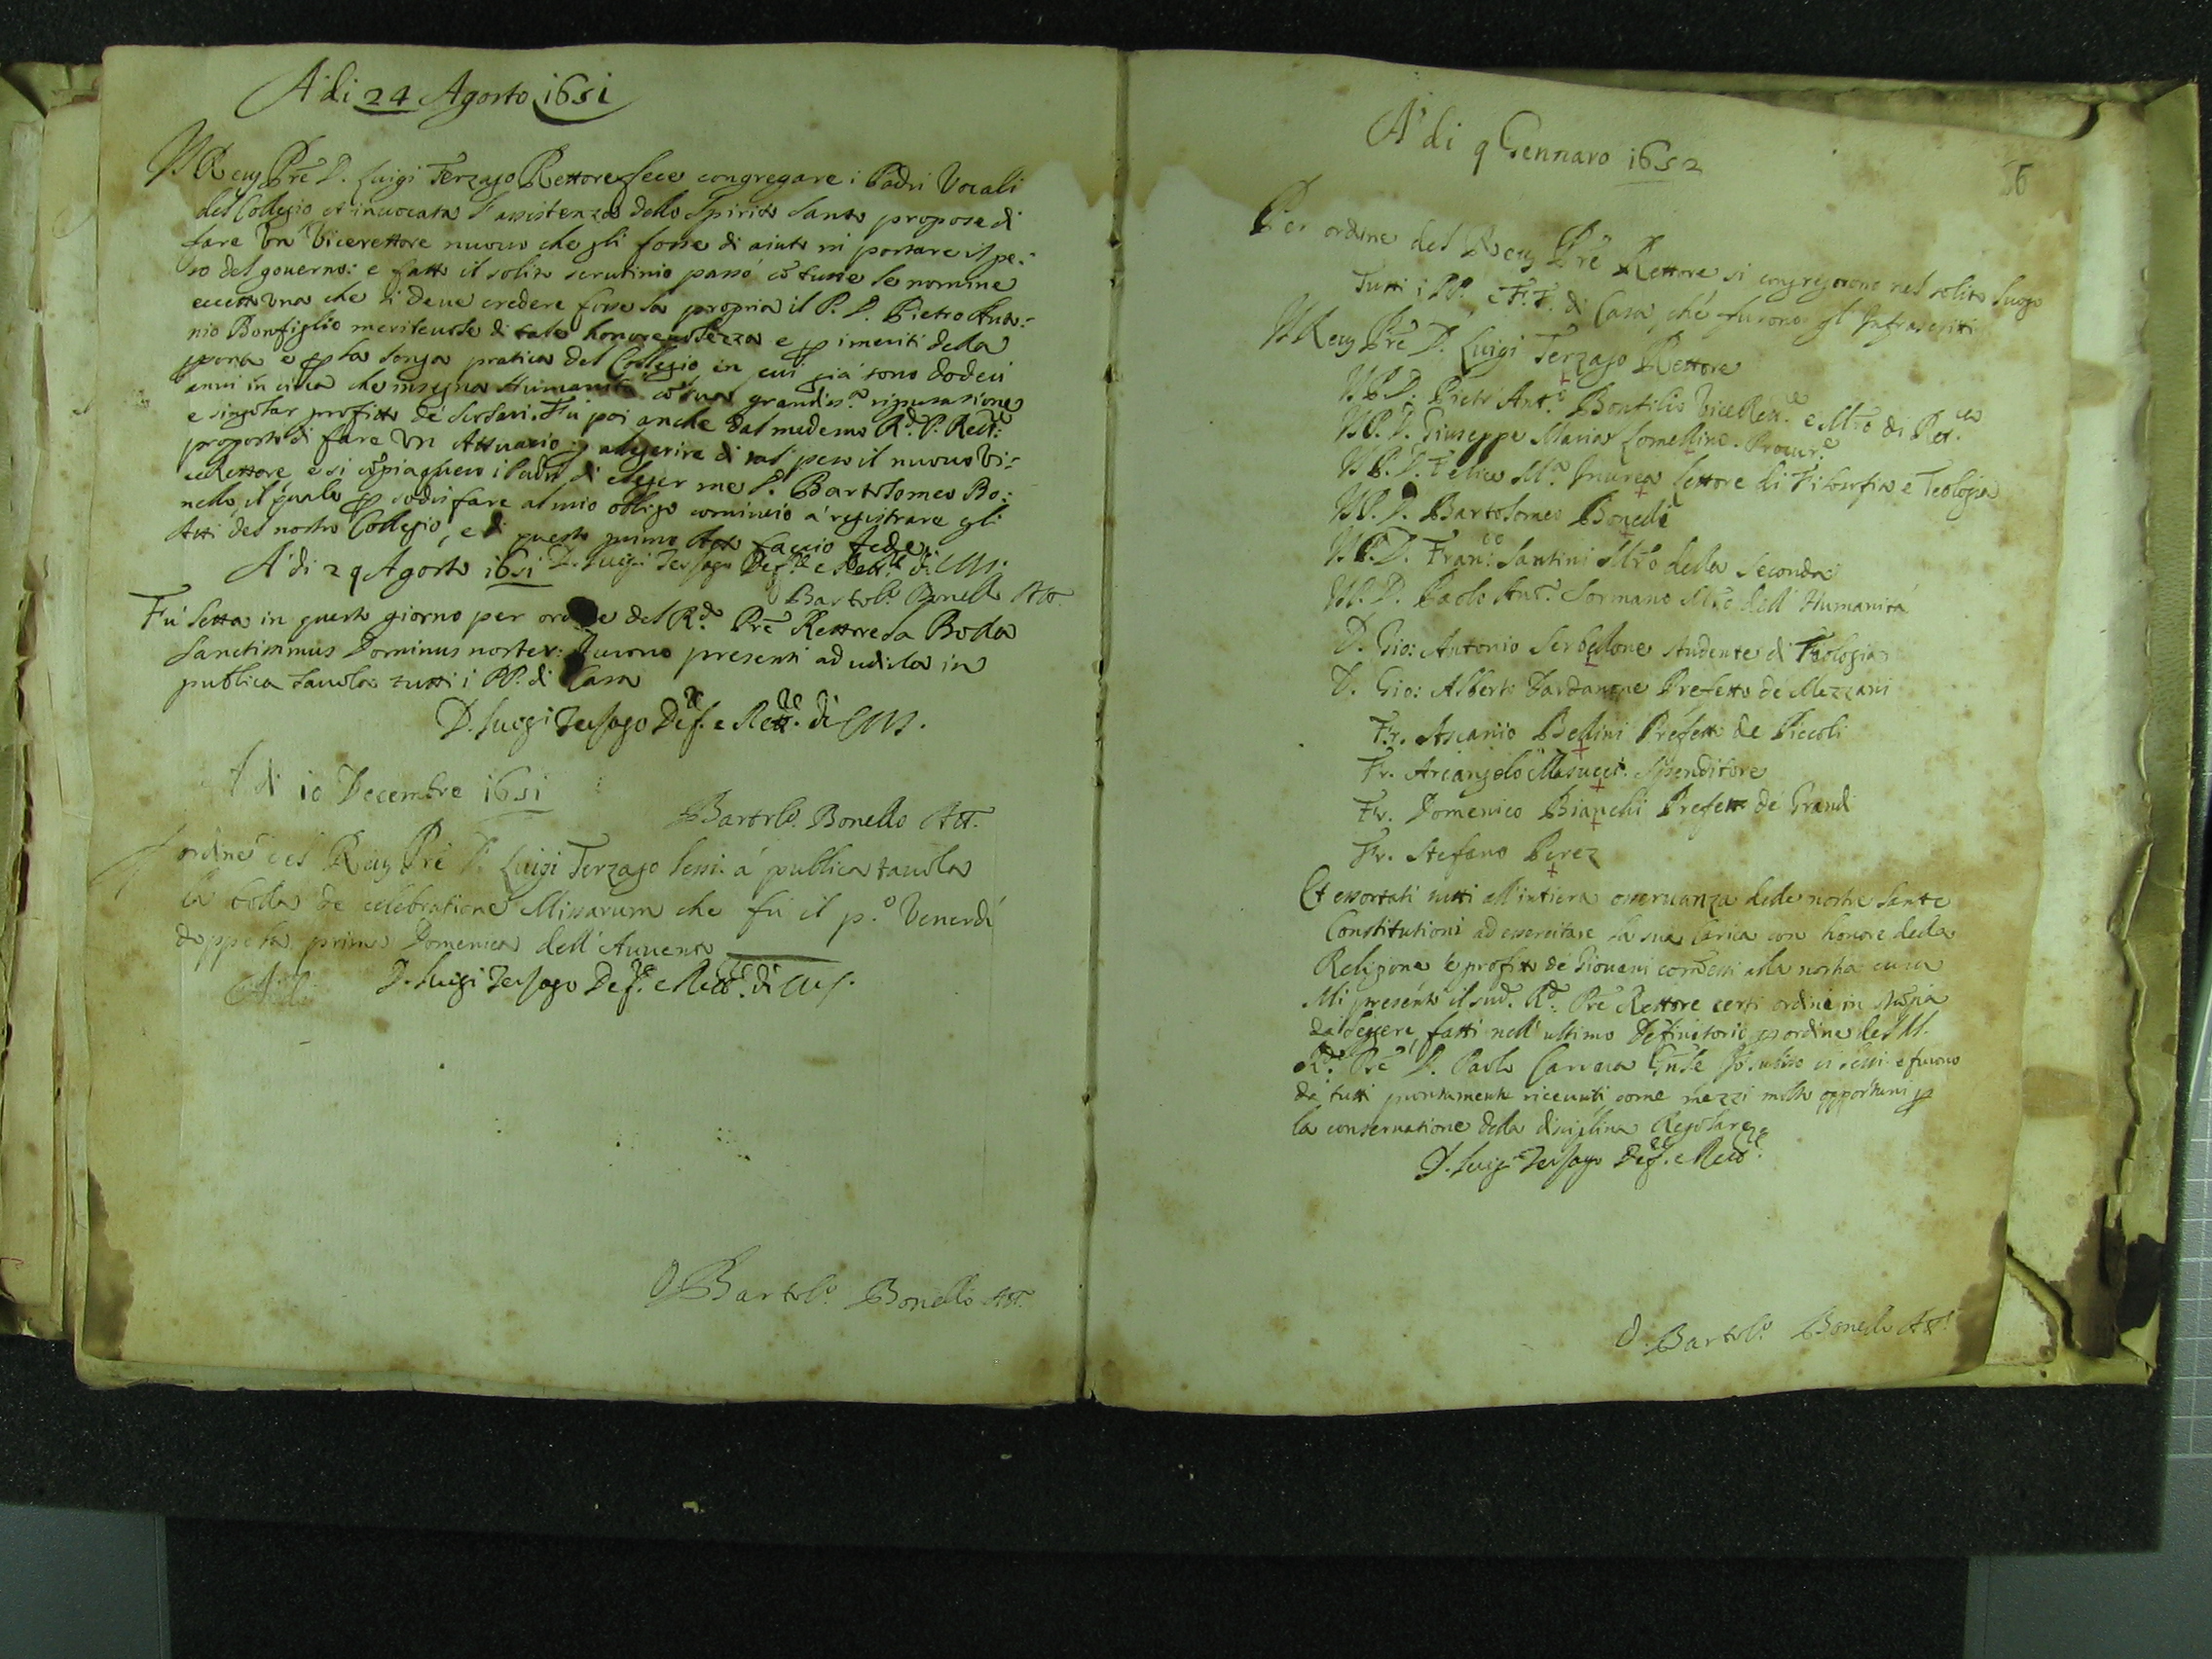 A di 24 Agosto 1651
Il Reu. Prē D. Luigi Terzago Rettore fece congregare i Padri Vocali
del Collegio et inuocata l'assistenza dello Spirito Santo propose di
fare Vn Vicerettore nuouo che gli fosse di aiuto in portare il pe-
so del gouerno: e fatto il solito scrutinio passò cō tutte le nomine
eccetto vna che si deue credere fosse la propria il P. D. Pietro Anto-
nio Bonfiglio meriteuole di tale honoreuolezza e p i meriti della
psona e p la longa pratica del Collegio in cui già sono dodeci
anni in circa che insegna Humanità cō sua grandiss.a riputatione
e singolar profitto de Scolari. Fù poi anche dal medemo R.do P. Rett.re
proposto di fare Vn Attuario p alegerire di tal peso il nuouo Vi-
cerettore, e si cōpiaquero i Padri di eleger me D. Bartolomeo Bo-
nello il quale p sodisfare al mio obligo comincio à registrare gli
Atti del nostro Collegio, e di questo primo Atto faccio fede.
D. Luigi Tersago Def.re e Rett.re di
A di 29 Agosto 1651
Bartol.o Bonello Att.
Fù letta in questo giorno per ordine del R.do Prē Rettore la Bolla
Sanctissimus Dominus noster: furono presenti ad udirla in
publica tauola tutti i PP. di Casa
D. Luigi Tersago Def.re e Rett.re di
A di 10 Decembre 1651
Bartol.o Bonello Att.
ordine del Reu. Prē D. Luigi Terzago lessi à publica tauola
la bolla de celebratione Missarum che fù il p.o Venerdì
doppo la prima Domenica dell'Auuento
D. Luigi Tersago Def.re e Rett.re di
A di
D. Bartol.o Bonello Att.
A di 9 Gennaro 1652
Per ordine del Reu. Prē Rettore si congregorono nel solito luogo
Tutti i PP. e F.F. di Casa, che furono gl'Infrascritti
Il Reu. Prē D. Luigi Terzago Rettore
Il P. D. Pietr'Ant.o Bonfilio ViceRett.re e Mrō di Ret.ca
Il P. D. Giuseppe Maria Lomellino Procur.e
Il P. D. Felice M.a Lettore di Filosofia e Teologia
Il P. D. Bartolomeo Bonelli
Il P. D. Fran.co Santini Mrō della Seconda
Il P. D. Paolo Ant.o Sormano Mrō dell'Humanità
D. Gio: Antonio Serbellone Studente di Teologia
D. Gio: Alberto Dardanone Prefetto de Mezzani
Fr. Ascanio Bellini Prefetto de Piccoli
Fr. Arcangelo Masucci Spenditore
Fr. Domenico Bianchi Prefetto de Grandi
Fr. Stefano Perez
Et essortati tutti all'intiera osseruanza delle nostre Sante
Constitutioni ad essercitare la sua carica con honore della
Religione e profitto de Giouani comessi alla nostra cura
Mi presentò il sud. R.do Prē Rettore certi ordini in
da leggere, fatti nell'ultimo Definitorio p ordine del M.
R.do Prē D. Paolo Carrara Gnle Io subito li lessi e furono
da tutti prontamente riceuuti come mezzi molto opportuni p
la conseruatione della disciplina Regolare
D. Luigi Tersago Def.re e Rett.re
D. Bartol.o Bonello Att.